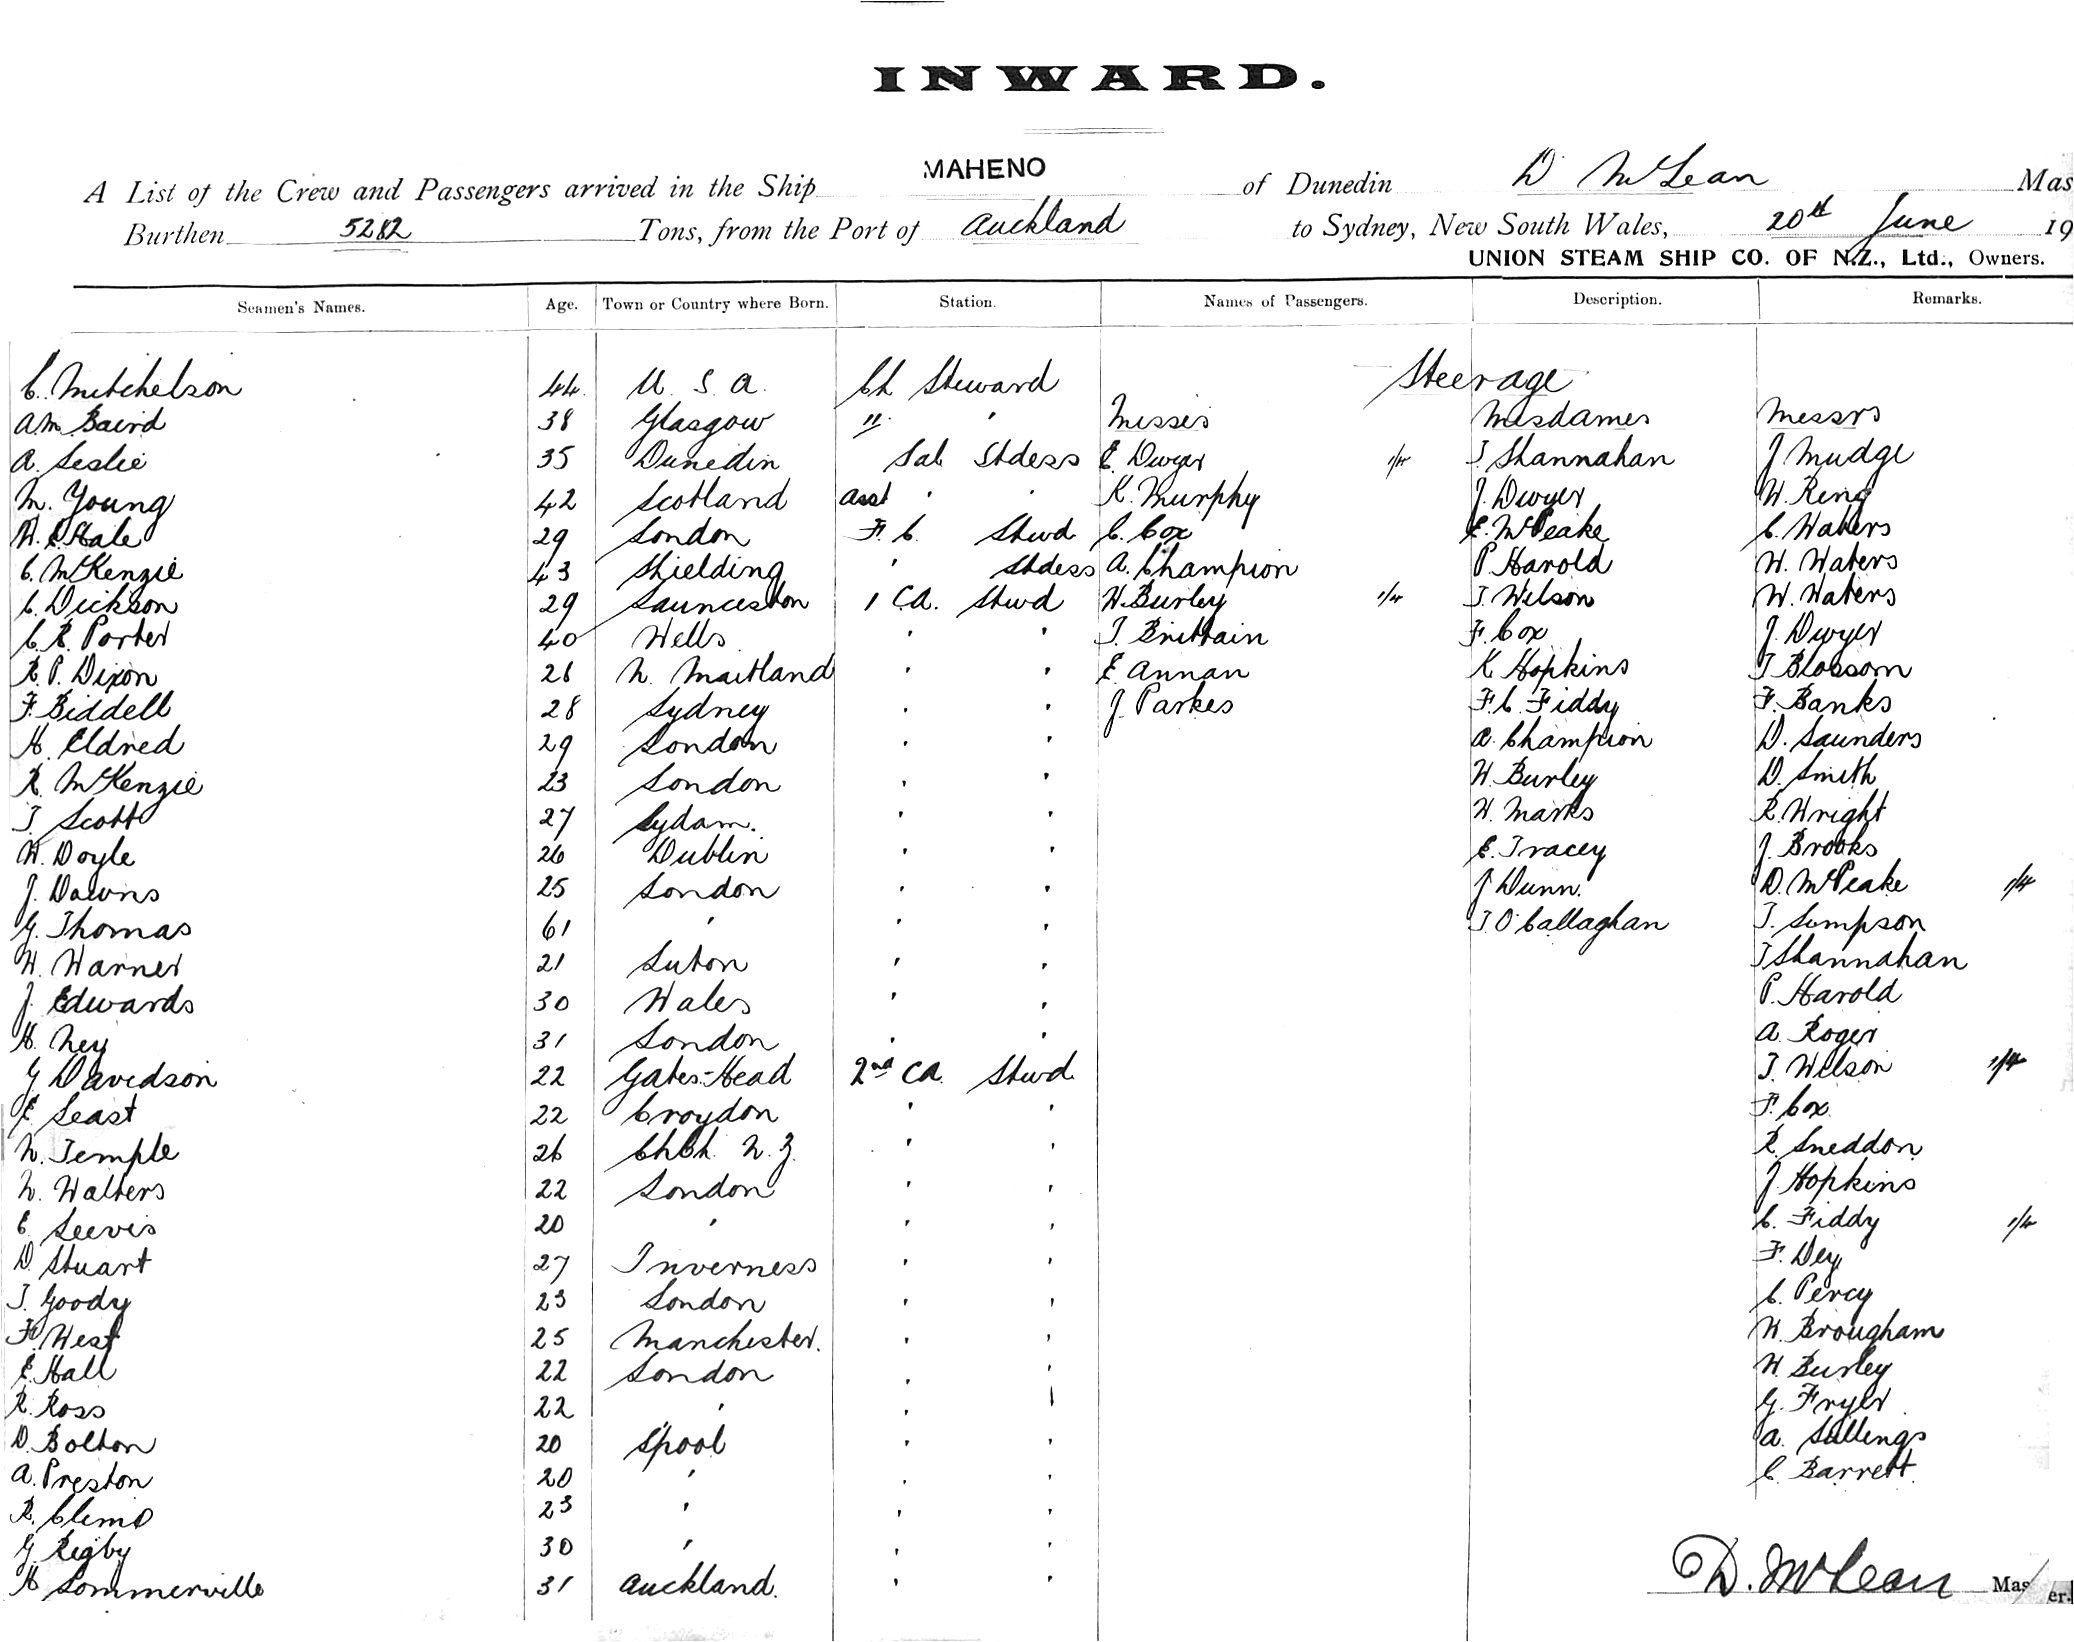 INWARD.
A List of the Crew and Passengers arrived in the Ship MAHENO of Dunedin D McLean Mas
Burthen 5282 Tons, from the Port of Auckland to Sydney, New South Wales, 20th June 19
UNION STEAM SHIP CO. OF N.Z., Ltd., Owners.
Seamen's Names. Age. Town or Country where Born. Station. Names of Passengers. Description. Remarks.
Steerage
C. Mitchelson 44 U. S. A. Ch Steward
A.M. Baird 38 Glasgow " ' Misses Mesdames Messrs
A. Leslie 35 Dunedin Sal Stdess E. Dwyer 1/4 T. Shannahan J Mudge
M. Young 42 Scotland Asst ' ' K. Murphy J. Dwyer W. Ring
W. E Hale 29 London F. C. Stwd C. Cox E. McPeake C. Waters
C. McKenzie 43 Shielding ' Stdess A. Champion P. Harold W. Waters
C. Dickson 29 Launceston 1 CA. Stwd W. Burley 1/4 T. Wilson W. Waters
C. R. Porter 40 Wells ' ' T. Brittain F. Cox J. Dwyer
R. P. Dixon 26 W. Maitland ' ' E Annan K Hopkins T Blossom
F. Biddell 28 Sydney ' ' J. Parkes F. C. Fiddy F. Banks
H. Eldred 29 London ' ' A. Champion D. Saunders
R. McKenzie 23 London ' ' W. Burley D. Smith
T. Scott 27 Sydam. ' ' W. Marks R. Wright
W. Doyle 26 Dublin ' ' E. Tracey J. Brooks
J. Downs 25 London ' ' J Dunn. D. McPeake 1/4
G. Thomas 61 ' ' ' T. O'Callaghan T. Simpson
W. Warner 21 Luton ' ' T Shannahan
J. Edwards 30 Wales ' ' P. Harold
H. Ney 31 London ' ' A. Roger
G Davidson 22 Gates-Head 2nd CA. Stwd T. Wilson 1/4
E Least 22 Croydon ' ' F. Cox
W. Temple 26 ChCh. N. Z. ' ' R. Sneddon
W. Walters 22 London ' ' J. Hopkins
E Leevis 20 ' ' ' C. Fiddy 1/4
D. Stuart 27 Inverness ' ' F. Dey
T. Goody 23 London ' ' C. Percy
F. West 25 Manchester. ' ' W. Brougham
E. Hall 22 London ' ' W. Burley
R. Ross 22 ' ' ' G. Fryer
D. Bolton 20 L'pool ' ' A. Sallings
A. Preston 20 ' ' ' C. Barrett.
R. Climo 23 ' ' '
G. Rigby 30 ' ' '
H Sommerville 31 Auckland. ' '
D. McLean Master.